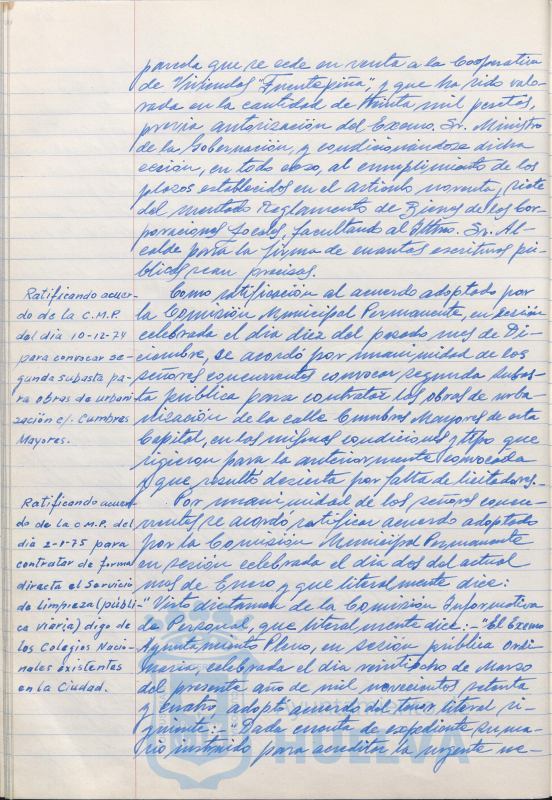 parcela que se cede en venta a la Cooperativa
de Viviendas "Fuentepiña", y que ha sido valo-
rada en la cantidad de treinta mil pesetas,
previa autorización del Excmo. Sr. Ministro
de la Gobernación, y condicionándose dicha
cesión, en todo caso, al cumplimiento de los
plazos establecidos en el artículo noventa y siete
del mentado Reglamento de Bienes de las Cor-
poraciones Locales, facultando al Iltmo. Sr. Al-
calde para la firma de cuantas escrituras pú-
blicas sean precisas.
Ratificando acuer-
do de la C.M.P.
del día 10-12-74
para convocar se-
gunda subasta pa-
ra obras de urbani-
zación c/. Cumbres
Mayores.
Como ratificación al acuerdo adoptado por
la Comisión Municipal Permanente, en sesión
celebrada el día diez del pasado mes de Di-
ciembre, se acordó por unanimidad de los
señores concurrentes convocar segunda subas-
ta pública para contratar las obras de urba-
nización de la calle Cumbres Mayores de esta
Capital, en las mismas condiciones y tipo que
rigieron para la anteriormente convocada
y que resultó desierta por falta de licitadores.-
Ratificando acuer-
do de la C.M.P. del
día 2-1-75 para
contratar de forma
directa el Servicio
de Limpieza (públi-
ca viaria) digo de
los Colegios Nacio-
nales existentes
en la Ciudad.
Por unanimidad de los señores concu-
rrentes se acordó ratificar acuerdo adoptado
por la Comisión Municipal Permanente
en sesión celebrada el día dos del actual
mes de Enero y que literalmente dice:
-"Visto dictamen de la Comisión Informativa
de Personal, que literalmente dice:-"El Excmo
Ayuntamiento Pleno, en sesión pública ordi-
naria, celebrada el día veintiocho de Marzo
del presente año de mil novecientos setenta
y cuatro, adoptó acuerdo del tenor literal si-
guiente:- Dada cuenta de expediente suma-
rio instruido para acreditar la urgente ne-
HUELVA